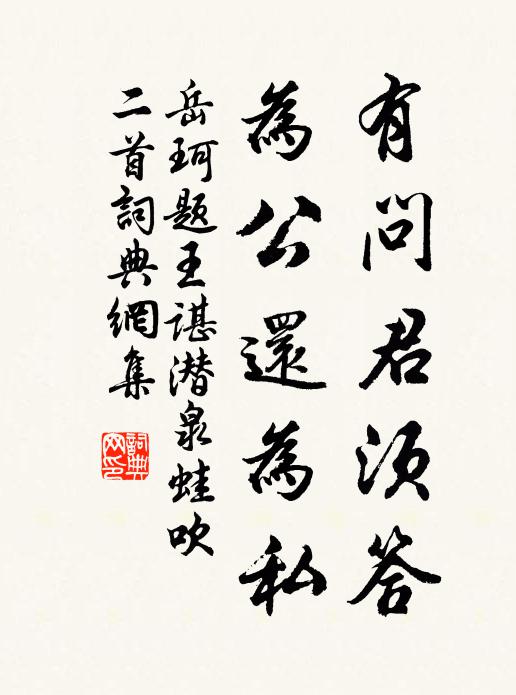 有問君須答
為公還為私
岳珂题王諶潜泉蛙吹
二首詞典網集
詞典网印